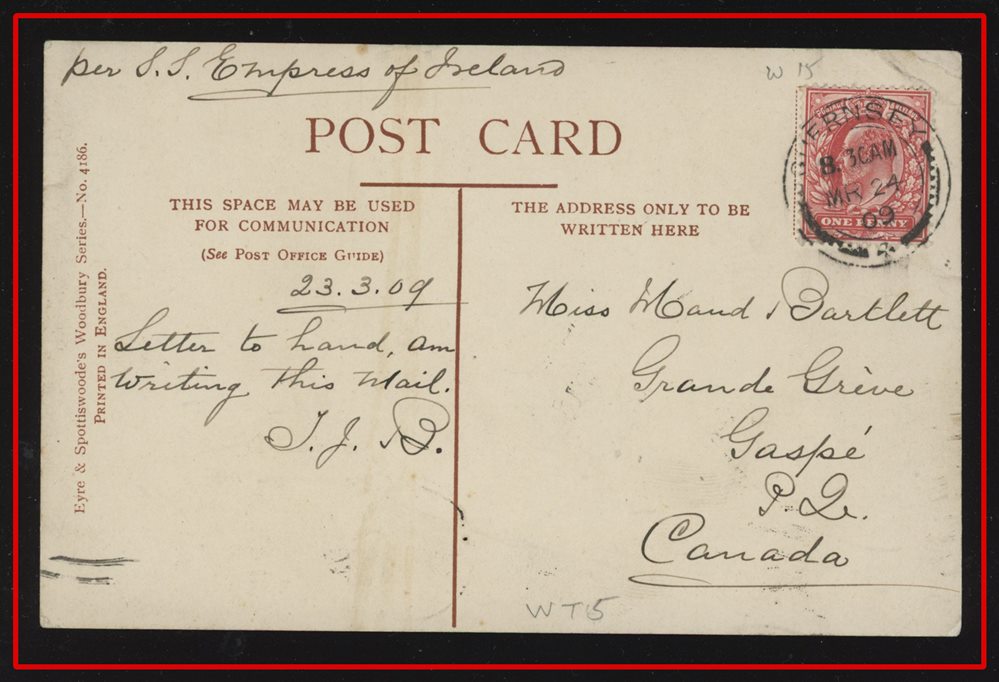 per S.S. Empress of Ireland
W 15
POST CARD
GUERNSEY
8.30AM
MR 24
09
ONE PENNY
THIS SPACE MAY BE USED
FOR COMMUNICATION
(See POST OFFICE GUIDE)
THE ADDRESS ONLY TO BE
WRITTEN HERE
23.3.09
Letter to hand, am
writing this mail.
T. J. B.
Miss Maud Bartlett
Grande Grève
Gaspé
P.Q.
Canada
WT5
Eyre & Spottiswoode's Woodbury Series.—No. 4186.
PRINTED IN ENGLAND.